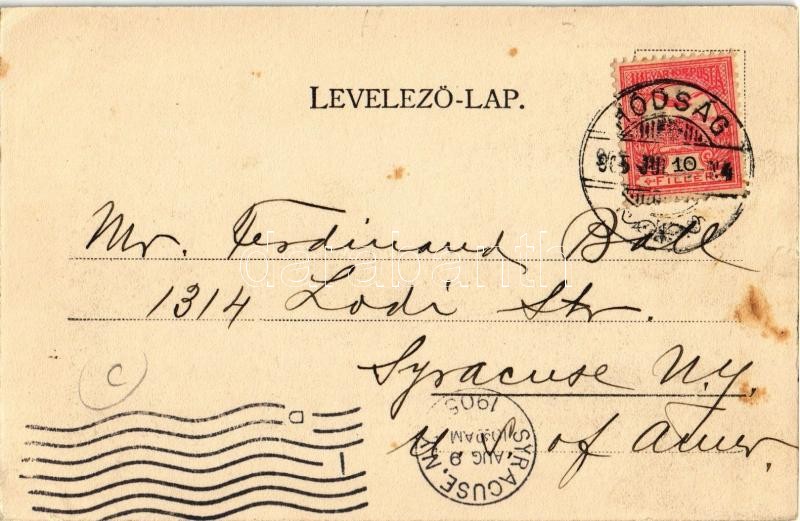 LEVELEZŐ-LAP.
MAGYAR KIR. POSTA
HÓDSÁG
905 JUL 24
10
FILLÉR
Mr. Ferdinand Ball
1314 Lodi Str.
Syracuse N.Y.
U.S. of Amer.
C
SYRACUSE, N.Y.
AUG 9
1905
D
1
darabanth